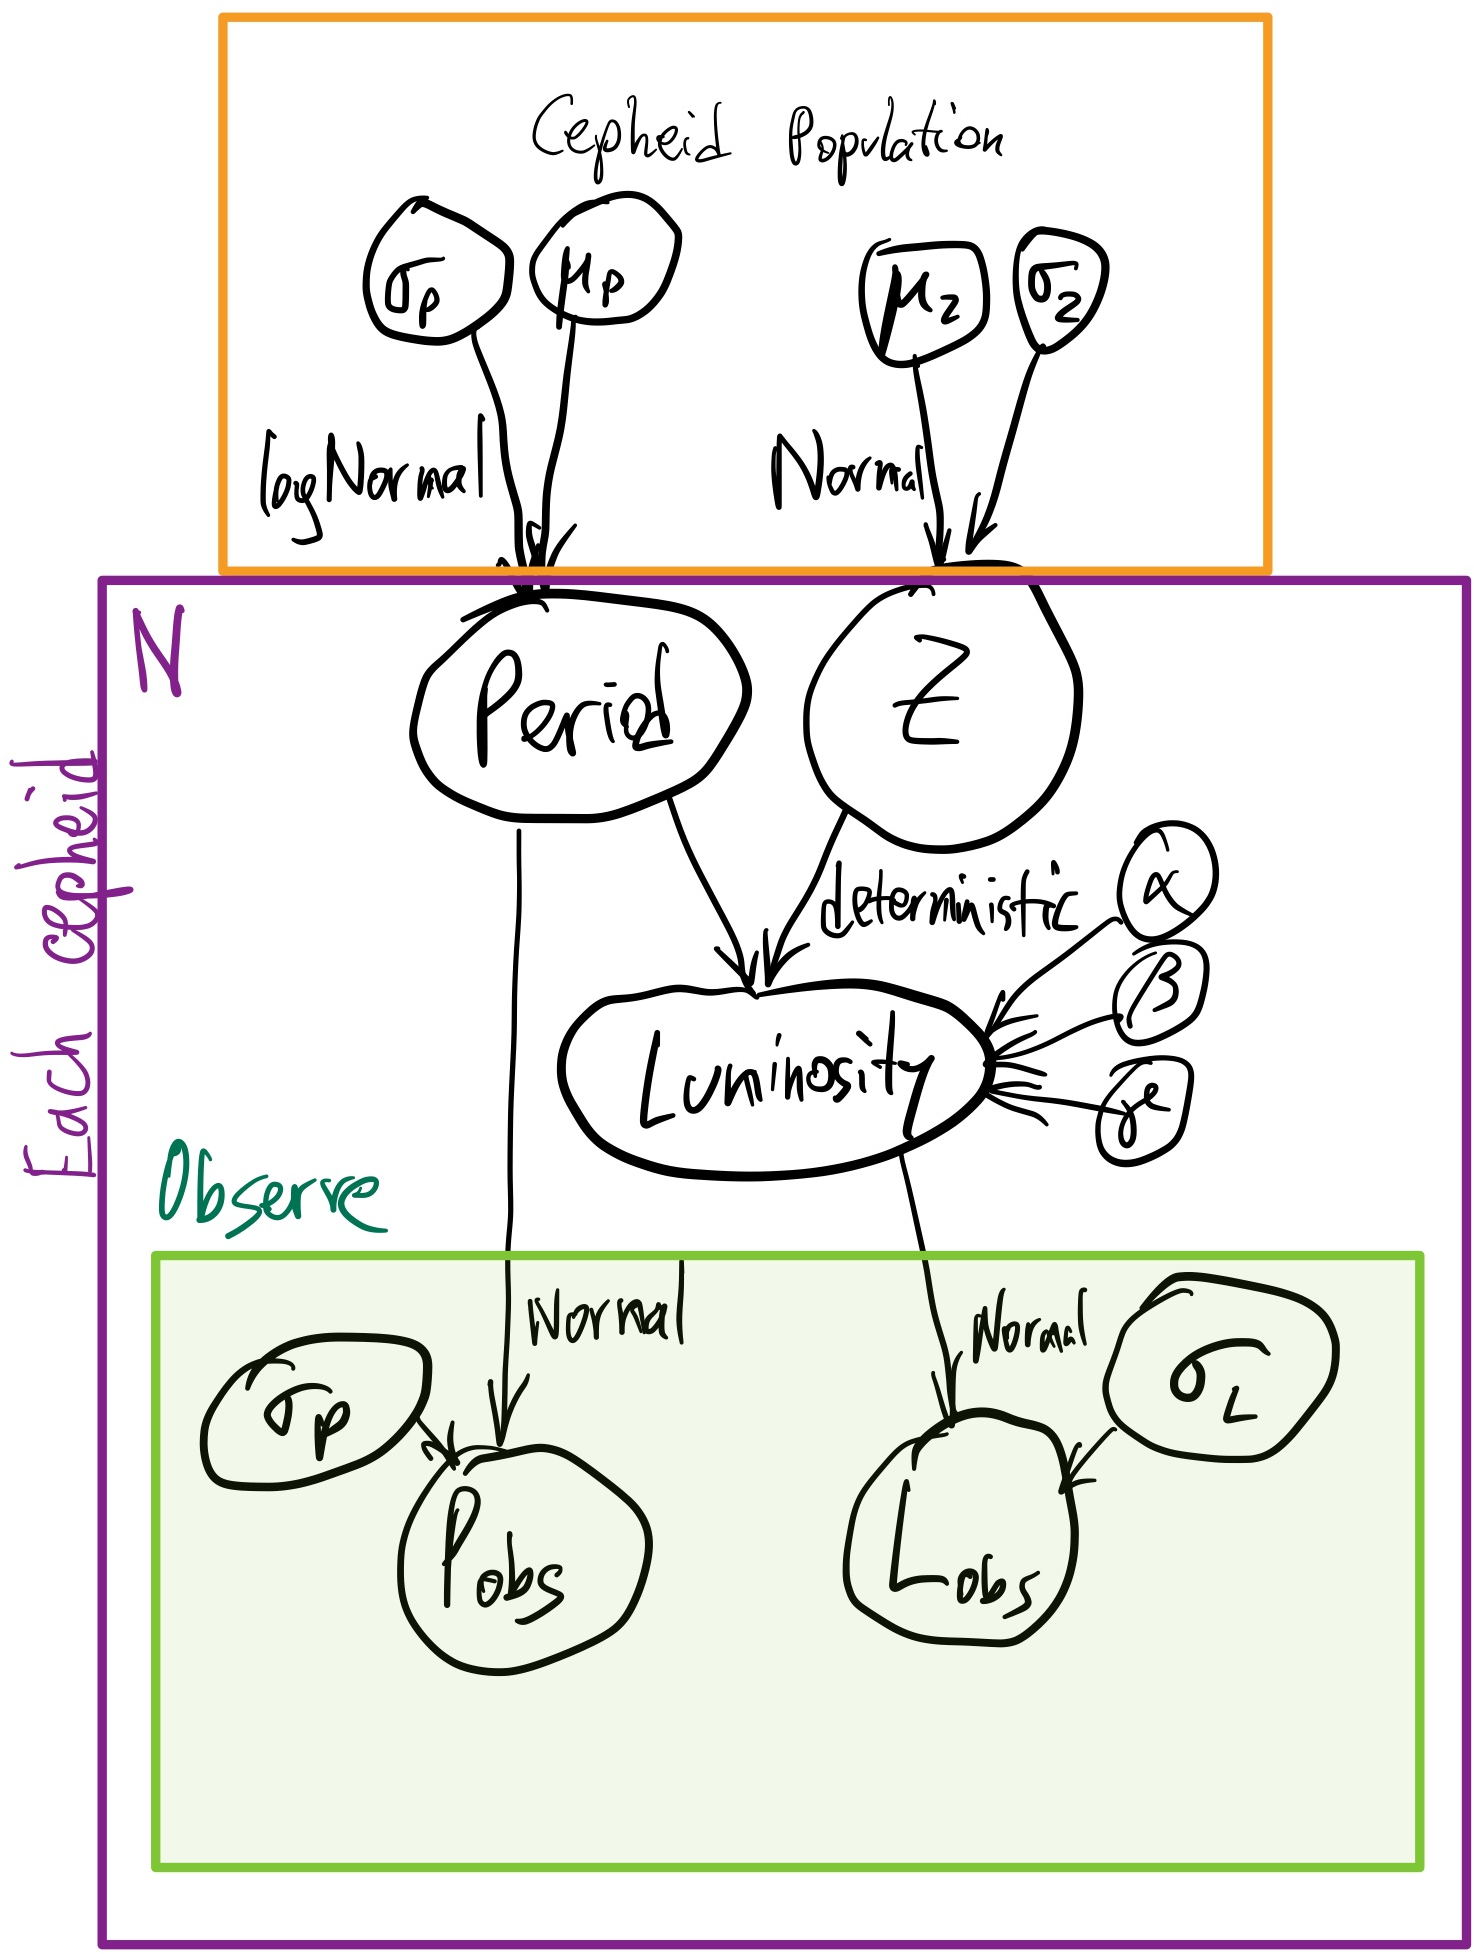 Cepheid Population
σ_P μ_P μ_Z σ_Z
logNormal Normal
N
Period Z
Each cepheid
deterministic
α
β
Luminosity
γ
Observe
Normal Normal
σ_P σ_L
P_obs L_obs